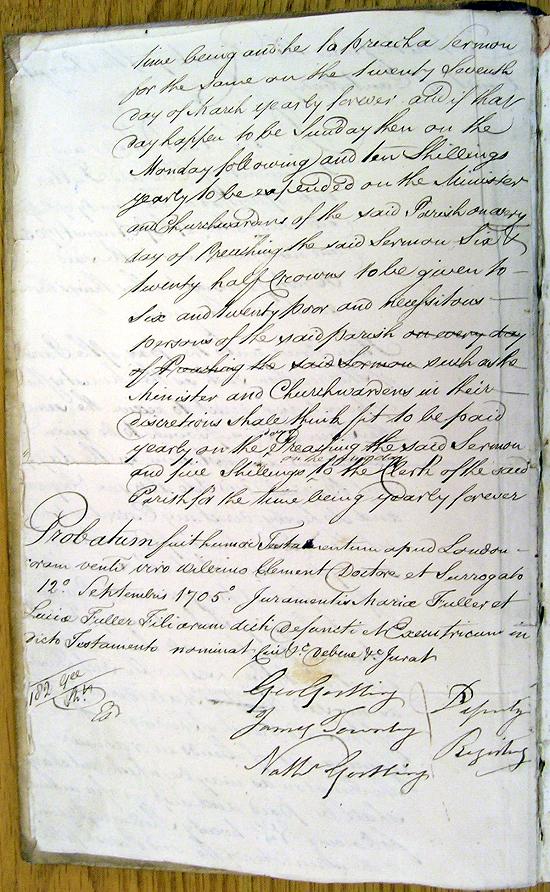 time being and he to preach a Sermon
for the same on the twenty Seventh
day of March yearly forever and if that
day happen to be Sunday then on the
Monday following) and ten Shillings
yearly to be expended on the Minister
and Churchwardens of the said Parish on every
day of Preaching the said Sermon Six &
twenty half Crowns to be given to
Six and twenty poor and necessitous
persons of the said parish on every day
of Preaching the said Sermon such as the
Minister and Churchwardens in their
discretions shall think fit to be paid
yearly on the day of Preaching the said Sermon
and five Shillings to the Clerk of the said
Parish for the time being yearly forever
Probatum fuit humoi Testamentum apud London
coram venli viro Wilelmo Clement Doctore et Surrogato
12º Septembris 1705º Juramentis Mariæ Fuller et
Luciæ Fuller Filiarum dicti Defuncti & Executricum in
dicto Testamento nominat Cui &c Debene &c Jurat
182
Geo Gostling
James Townley
Nath Gostling
Deputy
Registers